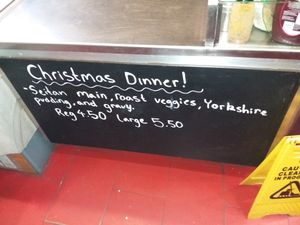 Christmas Dinner!
- Seitan main, roast veggies, Yorkshire
pudding, and gravy.
Reg 4.50 large 5.50
CAU
CLEA
IN PROG